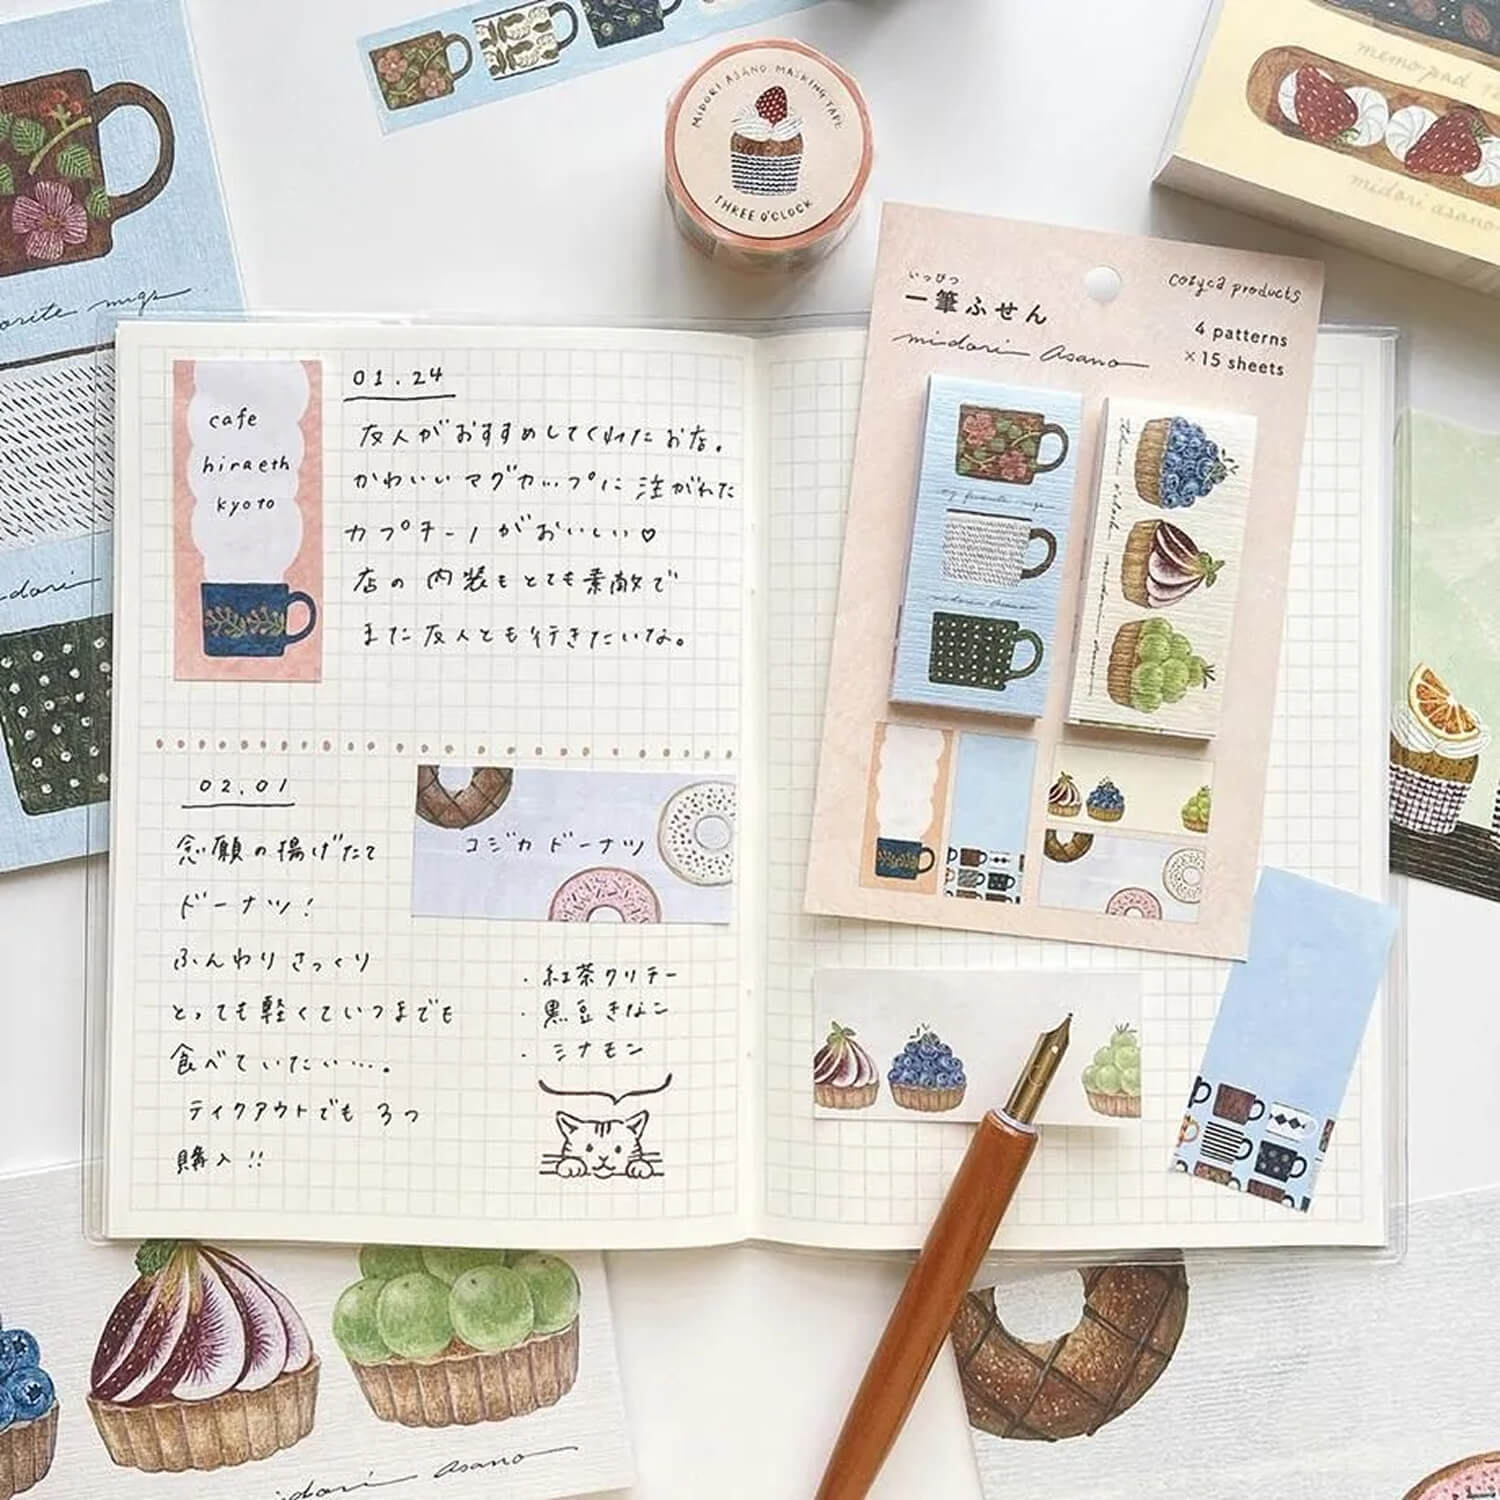 MIDORI ASANO MASKING TAPE
THREE O'CLOCK
memo pad
midori asano
orite mugs
dori
cafe
hiraeth
kyoto
01.24
友人がおすすめしてくれたお店。
かわいいマグカップに注がれた
カプチーノがおいしい♡
店の内装もとても素敵で
また友人とも行きたいな。
02.01
念願の揚げたて
ドーナツ!
ふんわりさっくり
とっても軽くていつまでも
食べていたい…。
テイクアウトでも3つ
購入!!
コジカドーナツ
・紅茶クリチー
・黒豆きなこ
・シナモン
いっぴつ
一筆ふせん
midori asano
cozyca products
4 patterns
×15 sheets
my favorite mugs
midori asano
three o'clock midori asano
idori asano